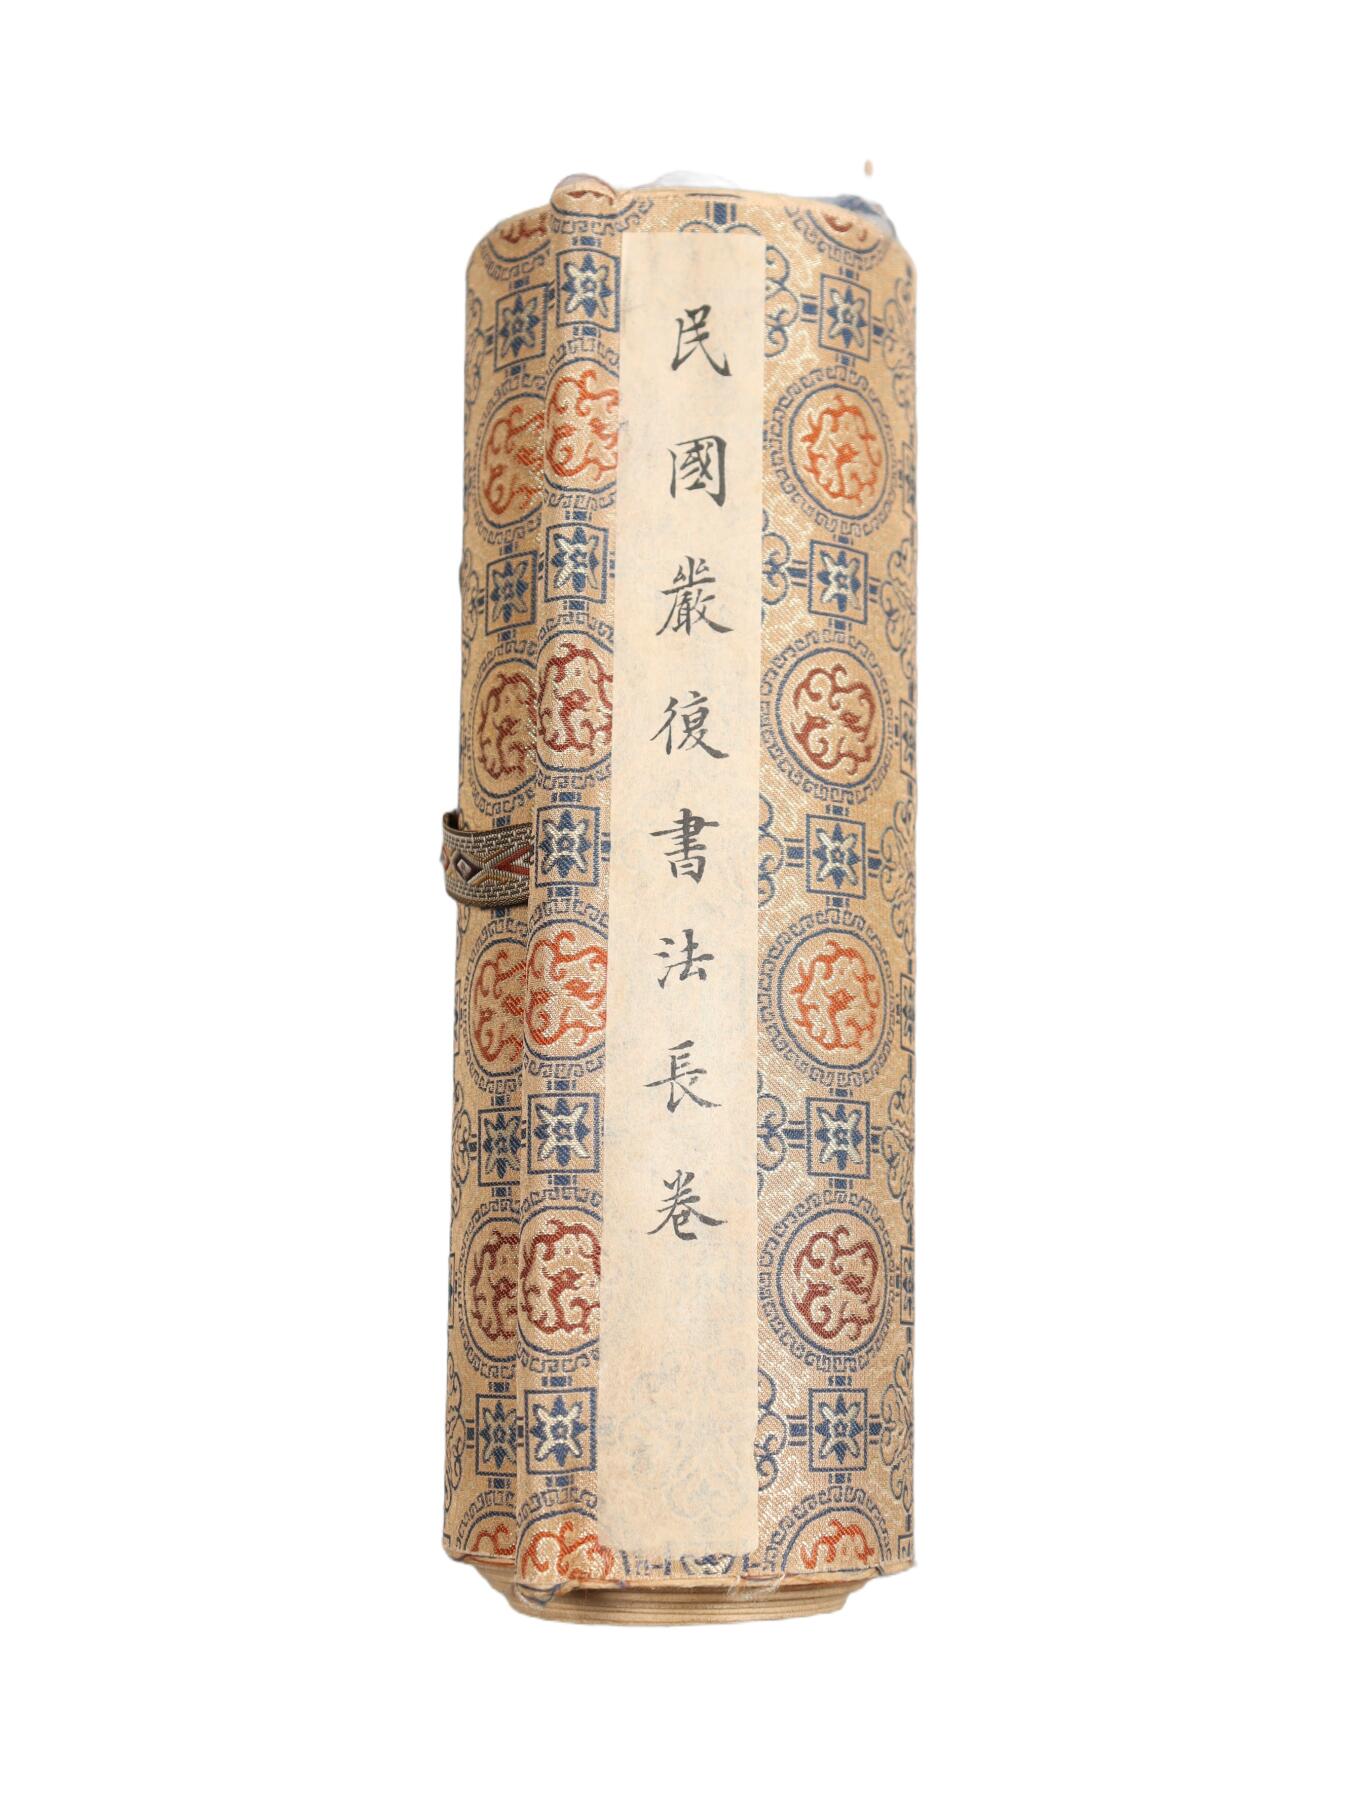 民國嚴復書法長卷